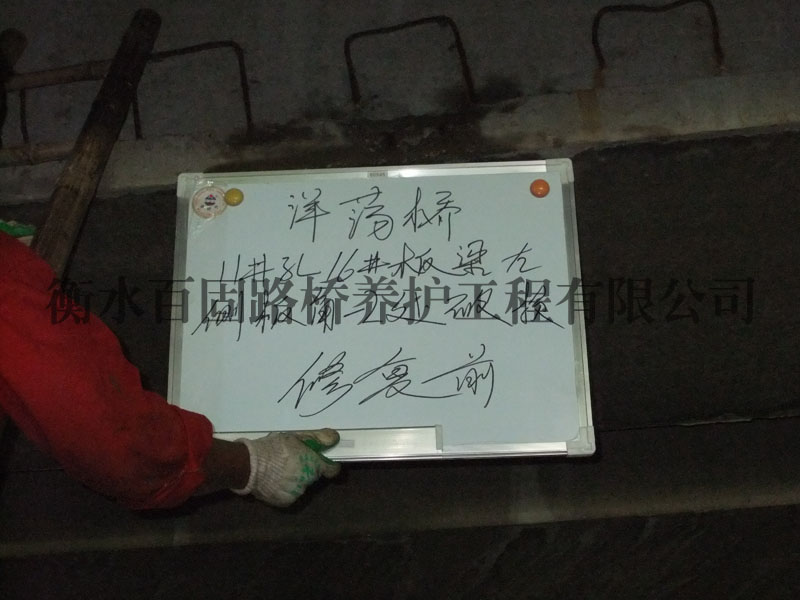 洋荡桥
11#孔16#板梁左
侧板第二处破损
修复前
衡水百固路桥养护工程有限公司